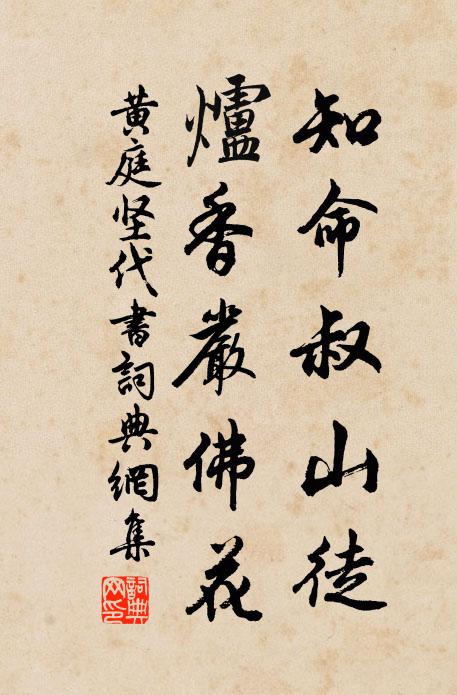 知命叔山徒
爐香嚴佛花
黃庭坚代書詞典網集
詞典